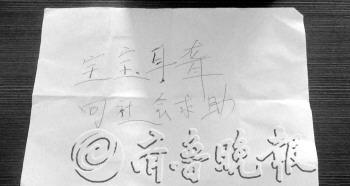 宝宝耳聋
向社会求助
@齐鲁晚报